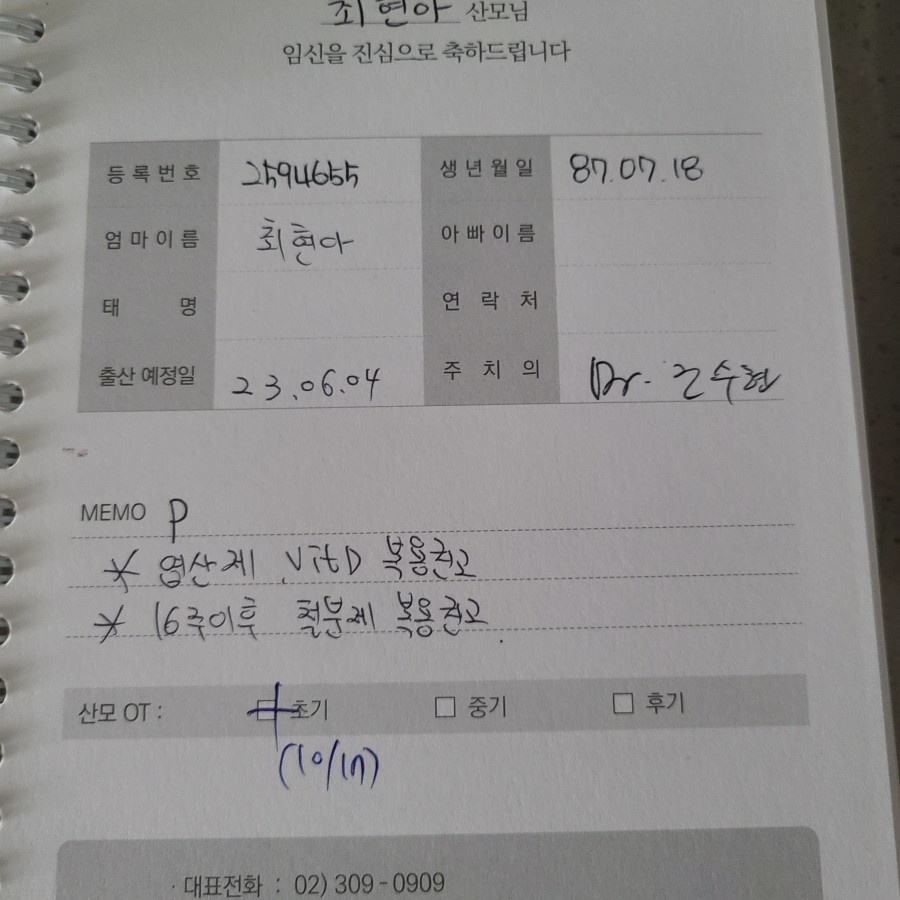 최현아 산모님
임신을 진심으로 축하드립니다
등록번호 2594655 생년월일 87.07.18
엄마이름 최현아 아빠이름
태 명 연 락 처
출산 예정일 23.06.04 주 치 의 Dr. 수현
MEMO P
* 엽산제 VitD 복용권고
* 16주이후 철분제 복용권고.
산모 OT : 초기 □ 중기 □ 후기
(10/17)
· 대표전화 : 02) 309-0909